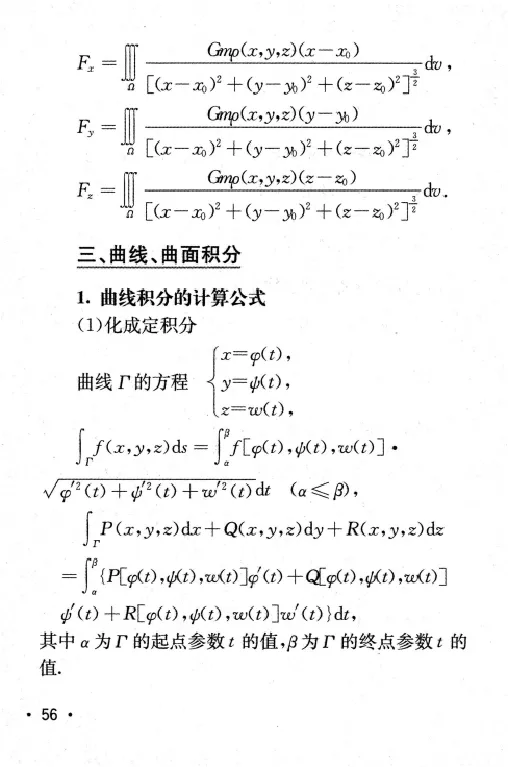 F_x = ∭_Ω Gmρ(x,y,z)(x−x₀) / [(x−x₀)²+(y−y₀)²+(z−z₀)²]^{3/2} dv,
F_y = ∭_Ω Gmρ(x,y,z)(y−y₀) / [(x−x₀)²+(y−y₀)²+(z−z₀)²]^{3/2} dv,
F_z = ∭_Ω Gmρ(x,y,z)(z−z₀) / [(x−x₀)²+(y−y₀)²+(z−z₀)²]^{3/2} dv.
三、曲线、曲面积分
1. 曲线积分的计算公式
(1)化成定积分
曲线 Γ 的方程 { x=φ(t), y=ψ(t), z=w(t),
∫_Γ f(x,y,z)ds = ∫_α^β f[φ(t),ψ(t),w(t)]·
√(φ′²(t)+ψ′²(t)+w′²(t)) dt (α≤β),
∫_Γ P(x,y,z)dx+Q(x,y,z)dy+R(x,y,z)dz
=∫_α^β {P[φ(t),ψ(t),w(t)]φ′(t)+Q[φ(t),ψ(t),w(t)]
ψ′(t)+R[φ(t),ψ(t),w(t)]w′(t)}dt,
其中 α 为 Γ 的起点参数 t 的值,β 为 Γ 的终点参数 t 的
值.
· 56 ·